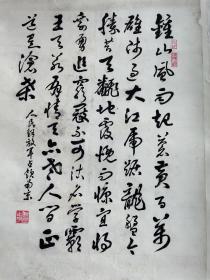 鐘山風雨起蒼黄百萬
雄師過大江虎踞龍盤今
勝昔天翻地覆慨而慷宜將
剩勇追窮寇不可沽名學霸
王天若有情天亦老人間正
道是滄桑
人民解放军占領南京